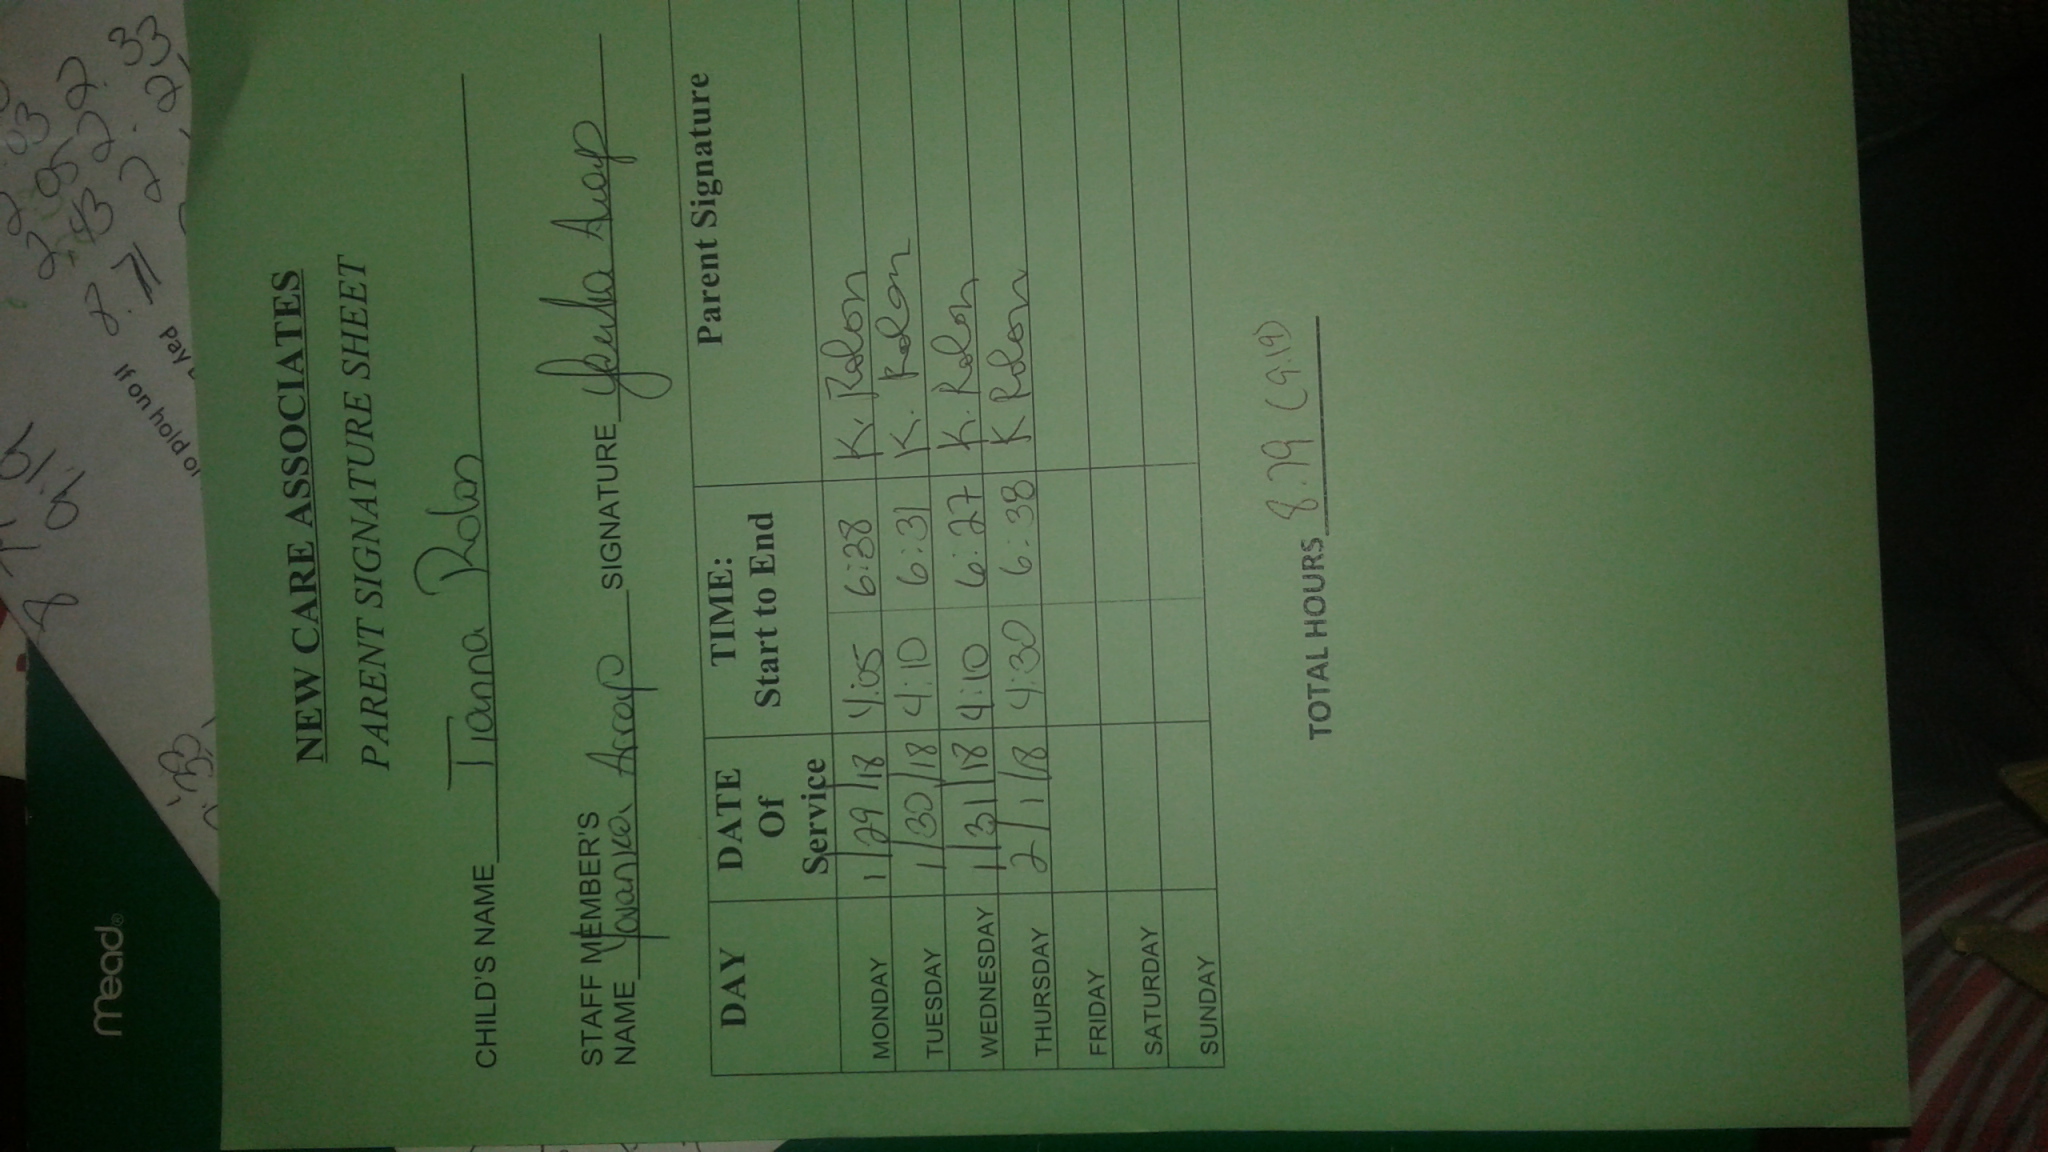 mead
NEW CARE ASSOCIATES
PARENT SIGNATURE SHEET
CHILD'S NAME Tianna Rolon
STAFF MEMBER'S
NAME Arap SIGNATURE Arap
DAY DATE Of Service TIME: Start to End Parent Signature
MONDAY 1/29/18 4:05 6:38 K. Rolon
TUESDAY 1/30/18 4:10 6:31 K. Rolon
WEDNESDAY 1/31/18 4:10 6:27 K. Rolon
THURSDAY 2/1/18 4:30 6:38 K Rolon
FRIDAY
SATURDAY
SUNDAY
TOTAL HOURS 8.79 (9:19)
9:19
If on hold
Pay